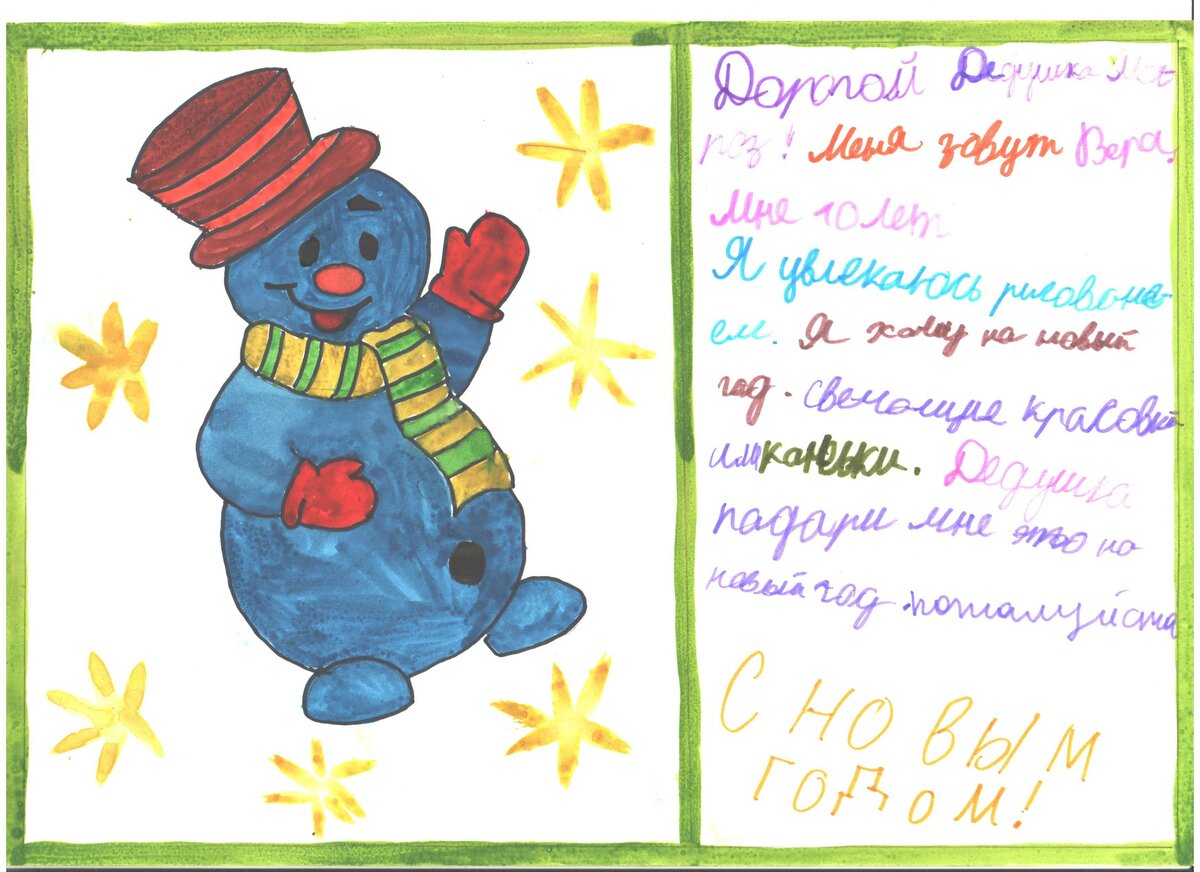 Дорогой Дедушка Мо-
роз! Меня зовут Вера.
Мне 10 лет
Я увлекаюсь рисовони-
ем. Я хочу на новый
год. светолщие красовки
или каньки. Дедушка
падари мне это на
новый год. пожалуйста
С НОВЫМ
ГОДОМ!